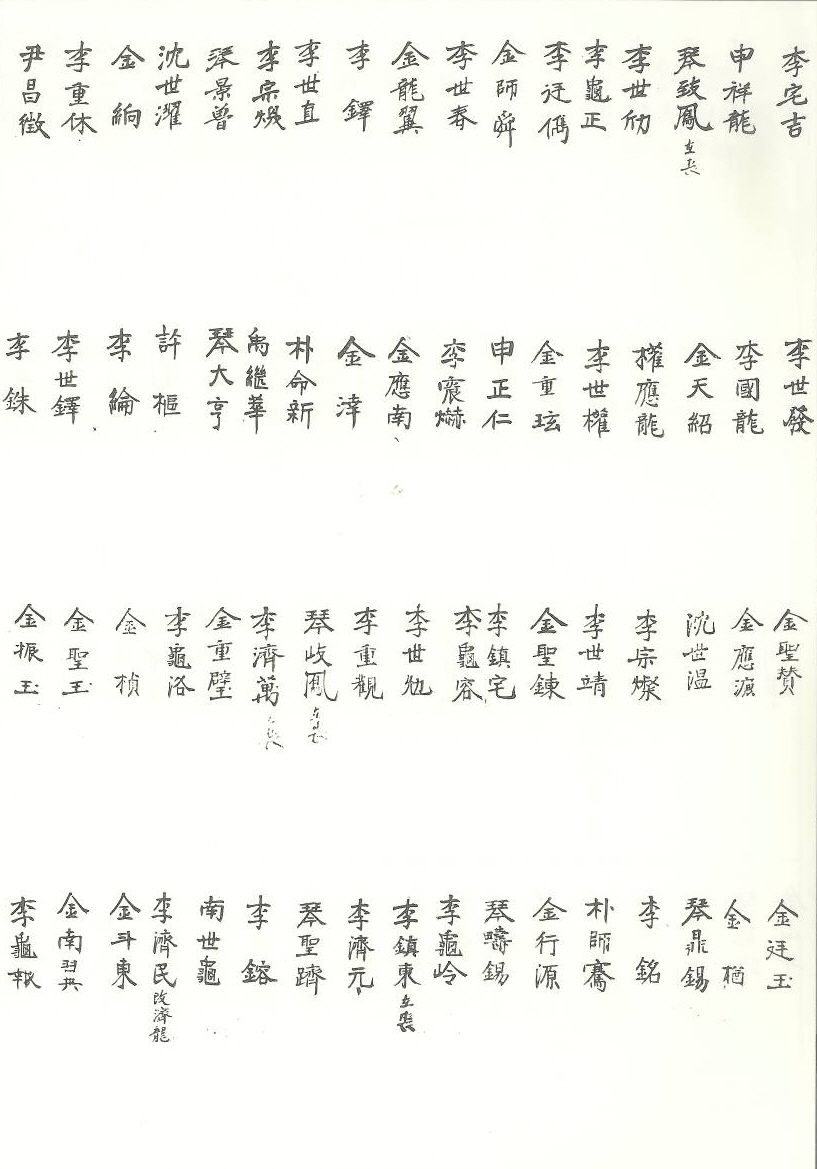 李宅吉
申祥龍
琴致鳳 在喪
李世劤
李龜正
李廷儁
金師舜
李世春
金龍翼
李鐸
李世直
李宗熤
琴景曾
沈世濯
金絅
李重休
尹昌徵
李世發
李國龍
金天紹
權應龍
李世權
金重玹
申正仁
李震爀
金應南
金滓
朴命新
禹繼華
琴大亨
許樞
李綸
李世鐸
李銖
金聖贊
金應濵
沈世温
李宗燦
李世靖
金聖鍊
李鎮宅
李龜容
李世勉
李重觀
琴岐鳳 在喪
李濟萬
金重璧
李龜洛
金楨
金聖玉
金振玉
金廷玉
金楢
琴鼎錫
李銘
朴師騫
金行源
琴疇錫
李龜岭
李鎮東 在喪
李濟元
琴聖躋
李鎔
南世龜
李濟民 改濟龍
金斗東
金南
李龜報